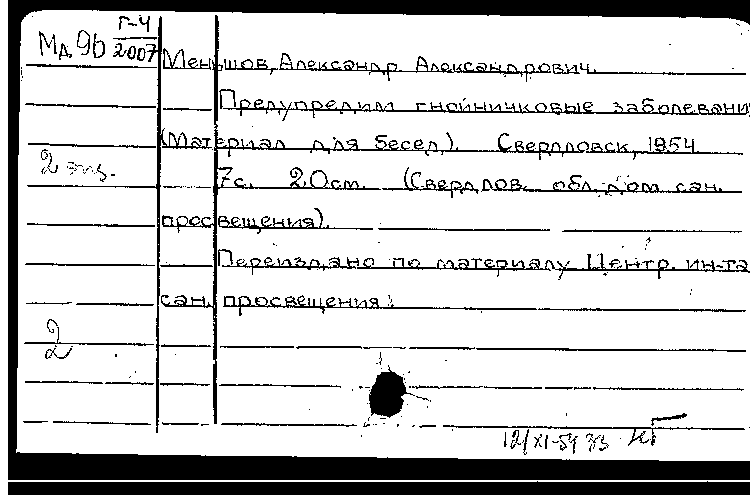 Мд 9б Г-4/2007
Меньшов, Александр Александрович.
Предупредим гнойничковые заболевани
(Материал для бесед). Свердловск, 1954
2 экз.
7с. 20см. (Свердлов. обл. дом сан.
просвещения).
Переиздано по материалу Центр. ин-та
сан. просвещения.
2
12/XI-54